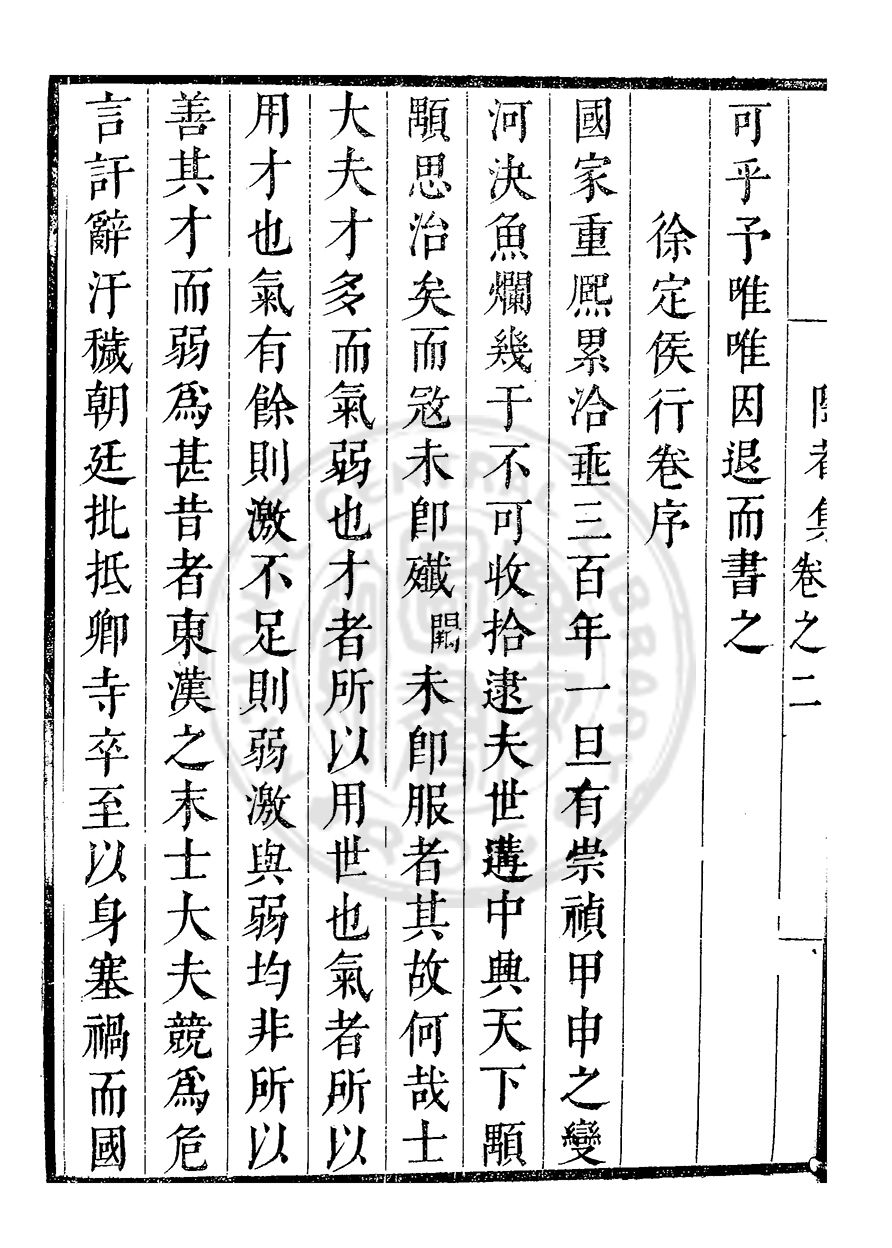 集卷之二
可乎予唯唯因退而書之
徐定侯行卷序
國家重熙累洽垂三百年一旦有崇禎甲申之變
河決魚爛幾于不可收拾逮夫世遘中興天下顒
顒思治矣而寇未卽殲閗未卽服者其故何哉士
大夫才多而氣弱也才者所以用世也氣者所以
用才也氣有餘則激不足則弱激與弱均非所以
善其才而弱爲甚昔者東漢之末士大夫競爲危
言訐辭汙穢朝廷批抵卿寺卒至以身塞禍而國